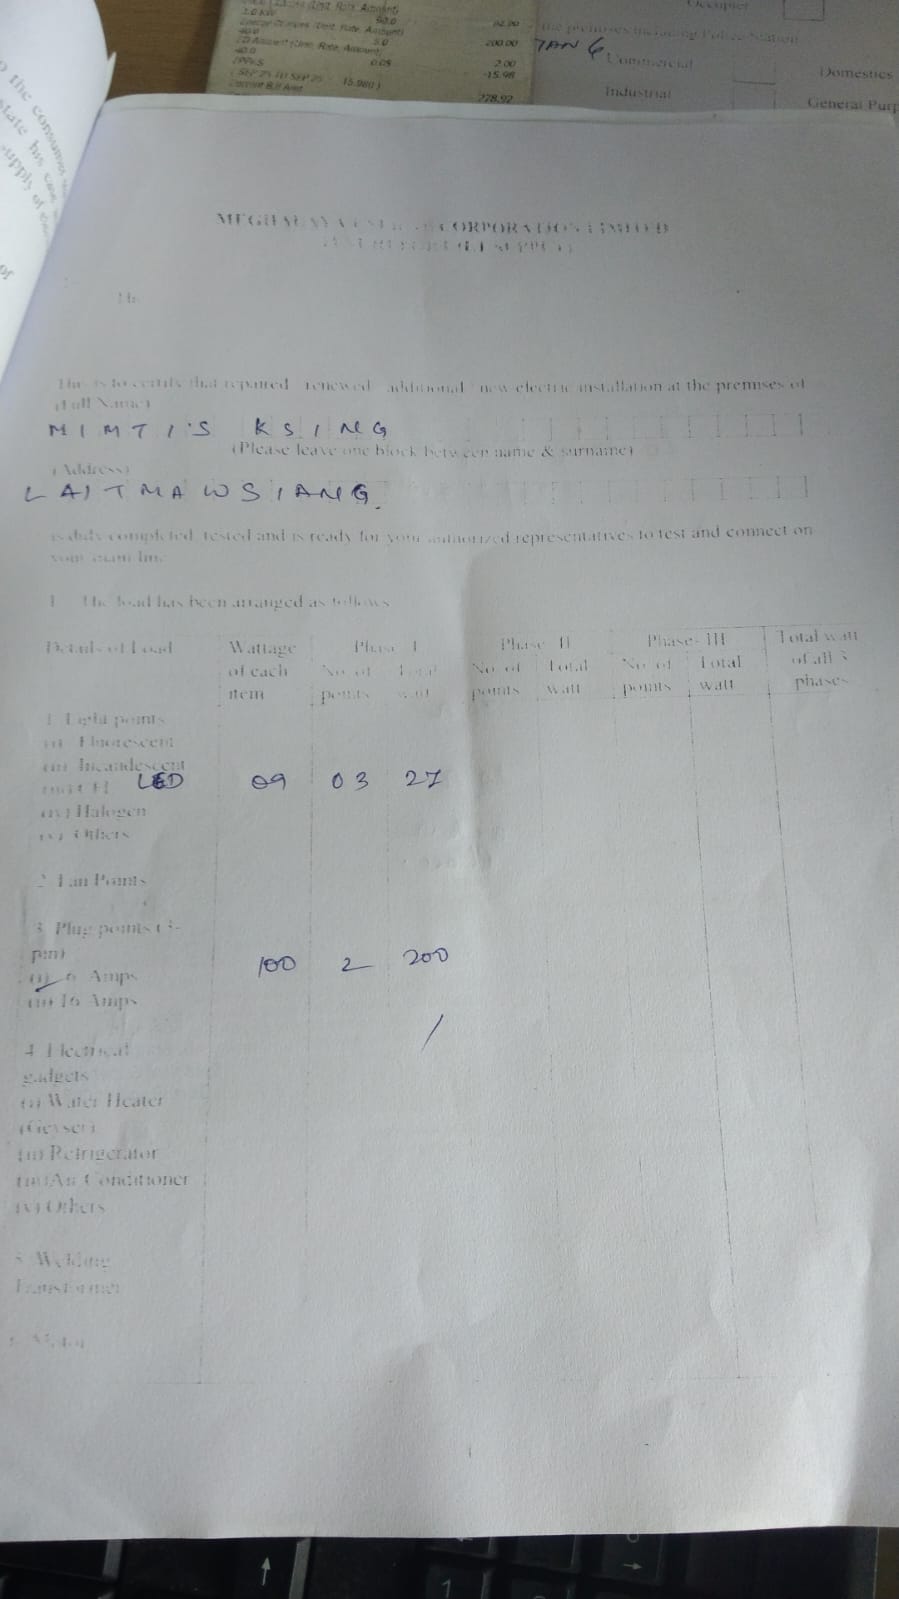 (Unit, Rate, Amount)
1.0 KW
90.0
Energy Charges (Unit, Rate, Amount)
40.0 5.0 200.00
40.0 0.05 2.00
FPPAS
-15.98
Current Bill Amt
278.92
Occupier
the premises including Police Station
JAN 6
Commercial
Domestics
Industrial
General Purp
to the consumer
state has
supply of
of
MEGHALAYA CORPORATION LIMITED
TEST REPORT (LT SUPPLY)
To
This is to certify that repaired renewed additional new electric installation at the premises of
(Full Name)
MIMTIS KSING
(Please leave one block between name & surname)
(Address)
LAITMAWSIANG
is duly completed, tested and is ready for your authorized representatives to test and connect on
your main line
1 The load has been arranged as follows
Details of Load Wattage of each item Phase-I Phase-II Phase-III Total watt of all 3 phases
No. of points Total watt No. of points Total watt No. of points Total watt
1. Light points
(i) Fluorescent
(ii) Incandescent
(iii) CFL LED 09 03 27
(iv) Halogen
(v) Others
2. Fan Points
3. Plug points (3-
pin)
(i) 6 Amps 100 2 200
(ii) 16 Amps
4. Electrical
gadgets
(i) Water Heater
(Geyser)
(ii) Refrigerator
(iii) Air Conditioner
(iv) Others
5. Welding
Transformer
6. Motor